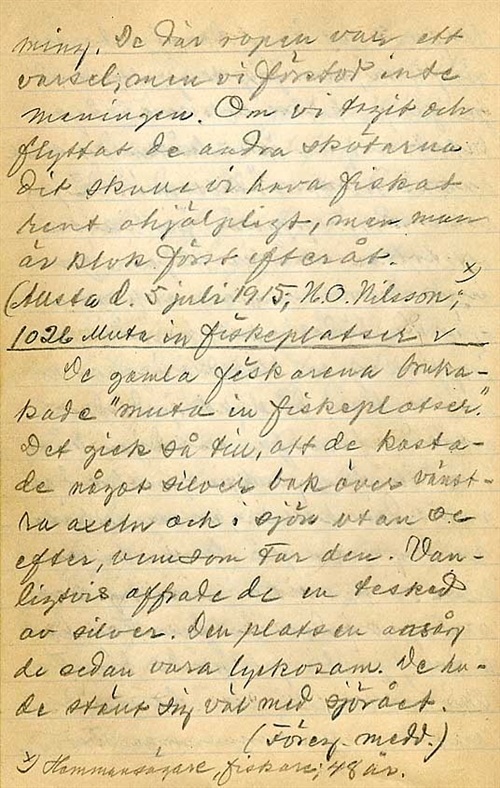 ming. De där ropen var ett
varsel, men vi förstod inte
meningen. Om vi tagit och
flyttat de andra skötarna
dit skulle vi hava fiskat
rent ohjälpligt, men man
är klok först efteråt.
(Austad. 5 juli 1915; N.O. Nilsson; x)
1026 Muta in fiskeplatser v
De gamla fiskarena bruka-
kade "muta in fiskeplatser."
Det gick så till, att de kasta-
de något silver bak över vänst-
ra axeln och i sjön utan se
efter, vem som tar den. Van-
ligtvis offrade de en tesked
av silver. Den platsen ansåg
de sedan vara lyckosam. De ha-
de stänt sig väl med sjörået.
(Föreg. medd.)
x) Hemmansägare, fiskare; 48 år.